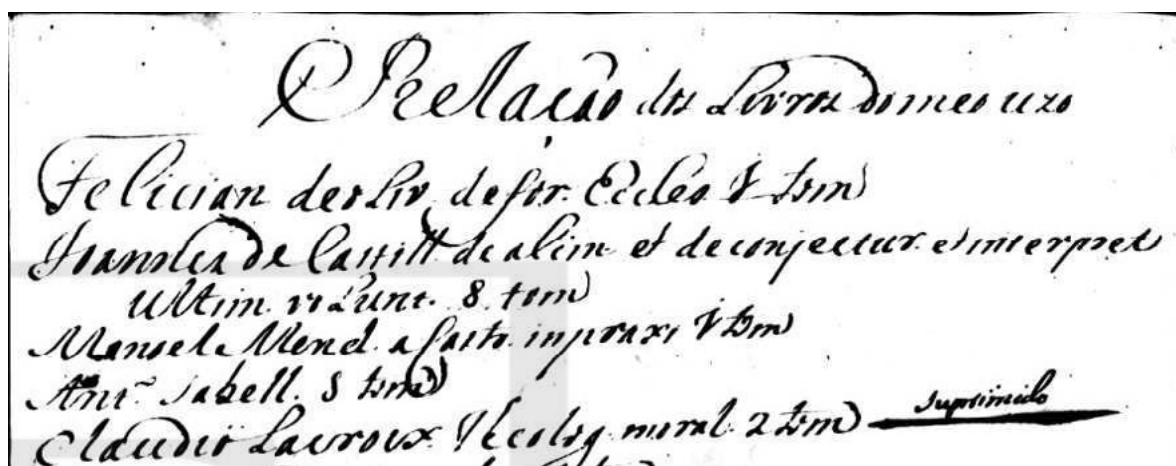 Relacão dos Livros do meo uzo
Felician de oliv. de for. Eccles 1 tom
Joannes de Castill. de alim et de conjectur. et interpret
Ultim. volunt. 8 tom
Manoel Mend. a Casto. in praxi 1 tom
Ant.º Sabell. 5 tom
Claudio Lacroix Theolog moral. 2 tom suprimido